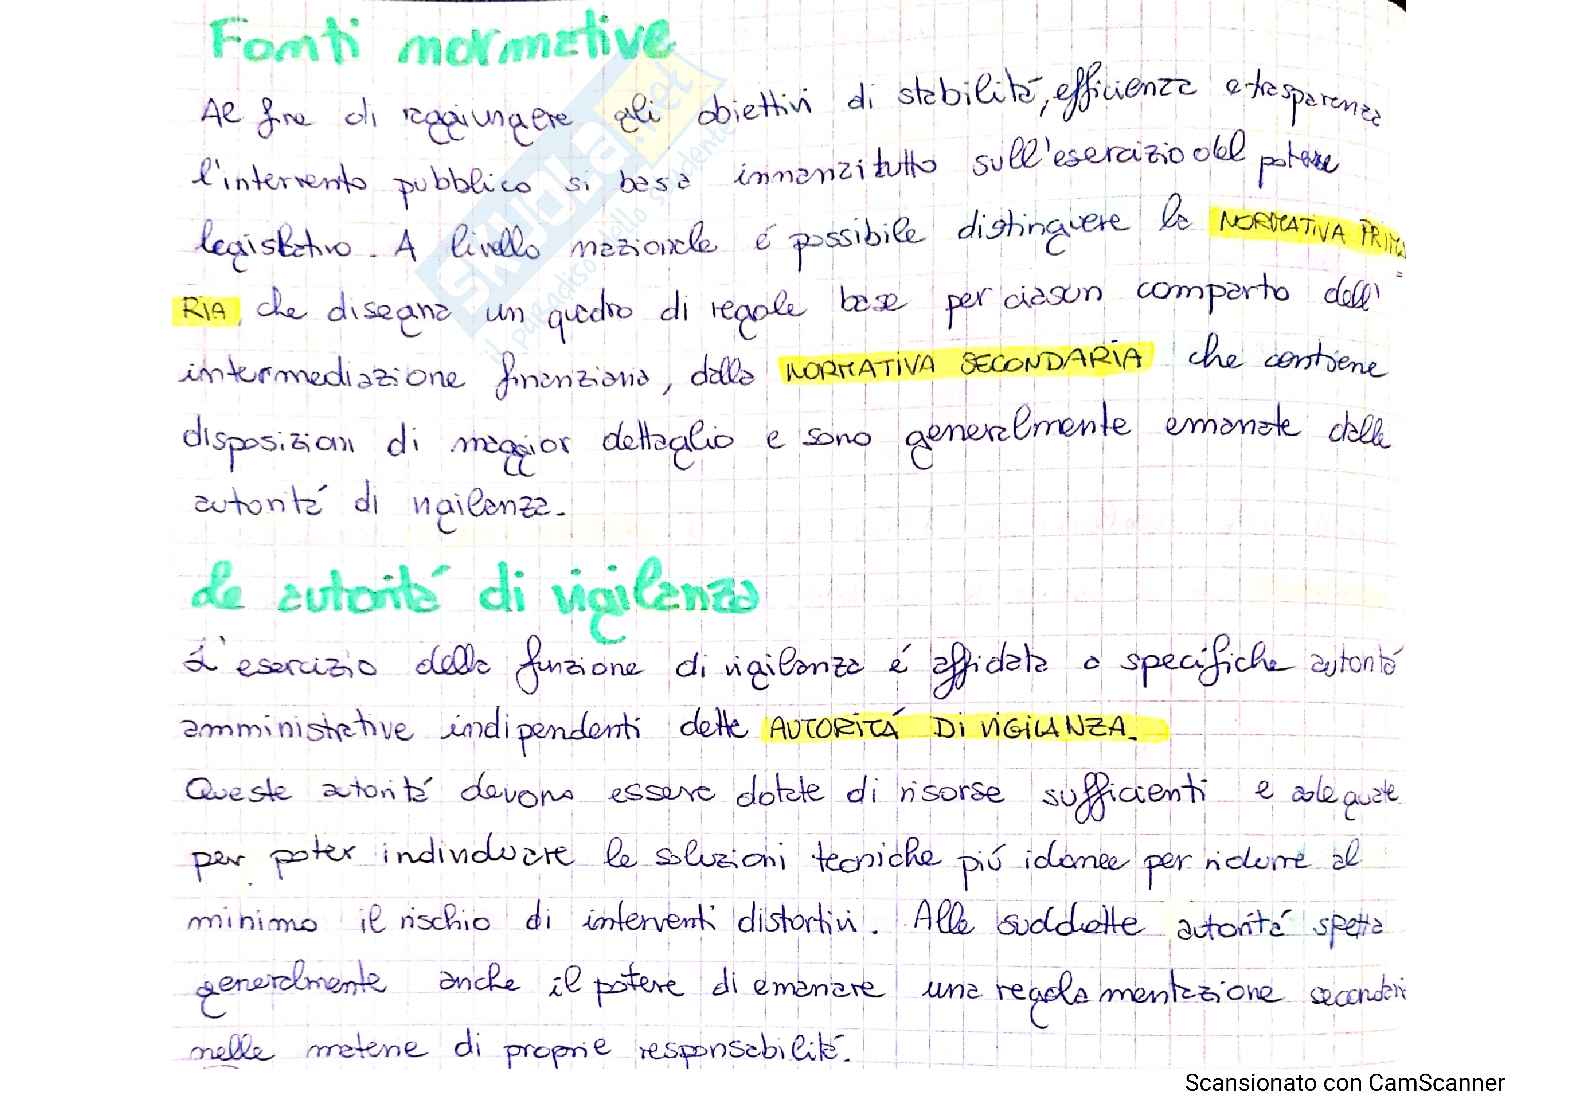 Fonti normative
Al fine di raggiungere gli obiettivi di stabilitá, efficienza e trasparenza
l'intervento pubblico si basa innanzitutto sull'esercizio del potere
legislativo. A livello nazionale é possibile distinguere la NORMATIVA PRIMA
RIA, che disegna un quadro di regole base per ciascun comparto dell'
intermediazione finanziaria, dalla NORMATIVA SECONDARIA che contiene
disposizioni di maggior dettaglio e sono generalmente emanate dalle
autoritá di vigilanza.
Le autoritá di vigilanza
L'esercizio della funzione di vigilanza é affidata a specifiche autoritá
amministrative indipendenti dette AUTORITÁ DI VIGILANZA.
Queste autoritá devono essere dotate di risorse sufficienti e adeguate
per poter individuare le soluzioni tecniche piú idonee per ridurre al
minimo il rischio di interventi distortivi. Alle suddette autoritá spetta
generalmente anche il potere di emanare una regolamentazione secondari
nelle materie di proprie responsabilitá.
skuola.net
il paradiso dello studente
Scansionato con CamScanner